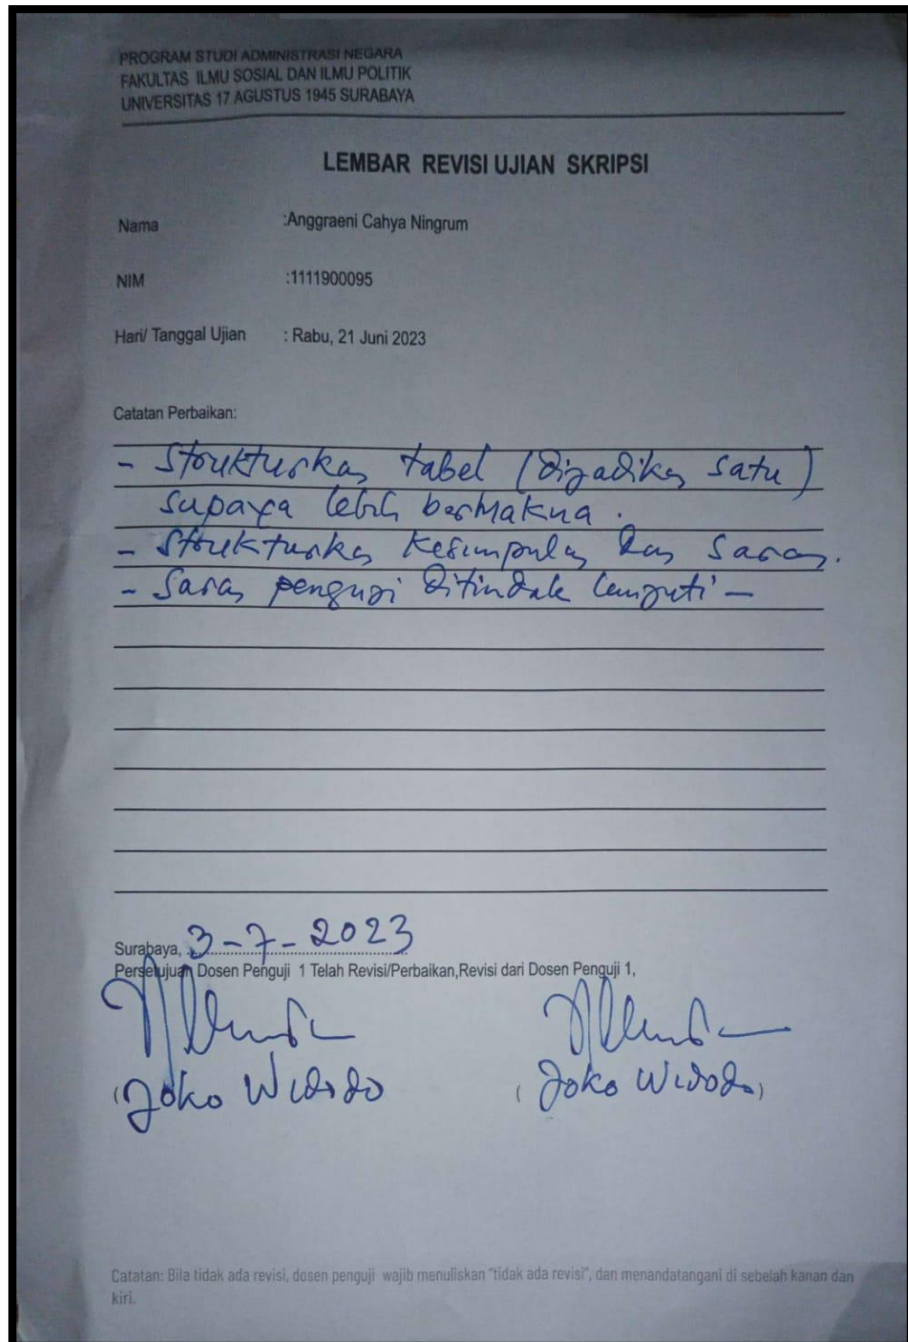 PROGRAM STUDI ADMINISTRASI NEGARA
FAKULTAS ILMU SOSIAL DAN ILMU POLITIK
UNIVERSITAS 17 AGUSTUS 1945 SURABAYA
LEMBAR REVISI UJIAN SKRIPSI
Nama :Anggraeni Cahya Ningrum
NIM :1111900095
Hari/ Tanggal Ujian : Rabu, 21 Juni 2023
Catatan Perbaikan:
- Strukturkan tabel (dijadikan satu)
supaya lebih bermakna.
- Strukturkan kesimpulan dan saran.
- Saran penguji ditindak lanjuti -
Surabaya, 3-7-2023
Persetujuan Dosen Penguji 1 Telah Revisi/Perbaikan,Revisi dari Dosen Penguji 1,
(Joko Widodo) (Joko Widodo)
Catatan: Bila tidak ada revisi, dosen penguji wajib menuliskan "tidak ada revisi", dan menandatangani di sebelah kanan dan
kiri.